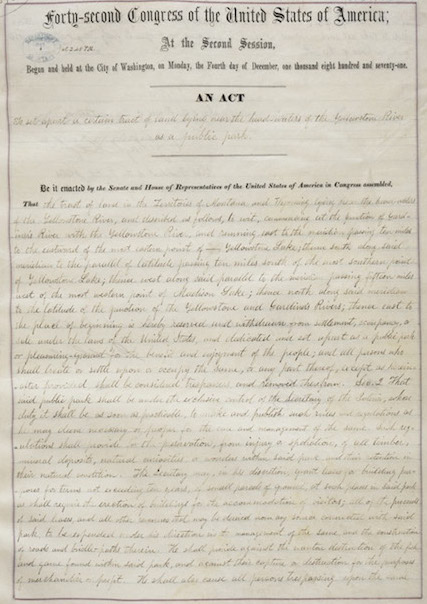 Forty-second Congress of the United States of America;
At the Second Session,
Begun and held at the City of Washington, on Monday, the Fourth day of December, one thousand eight hundred and seventy-one.
AN ACT
To set apart a certain tract of land lying near the head-waters of the Yellowstone River
as a public park.
Be it enacted by the Senate and House of Representatives of the United States of America in Congress assembled,
That the tract of land in the Territories of Montana and Wyoming lying near the head-waters
of the Yellowstone River, and described as follows, to wit, commencing at the junction of Gardi-
ner's River with the Yellowstone River, and running east to the meridian passing ten miles
to the eastward of the most eastern point of Yellowstone Lake; thence south along said
meridian to the parallel of latitude passing ten miles south of the most southern point
of Yellowstone Lake; thence west along said parallel to the meridian passing fifteen miles
west of the most western point of Madison Lake; thence north along said meridian
to the latitude of the junction of the Yellowstone and Gardiner's Rivers; thence east to
the place of beginning is hereby reserved and withdrawn from settlement, occupancy, or
sale under the laws of the United States, and dedicated and set apart as a public park
or pleasuring-ground for the benefit and enjoyment of the people; and all persons who
shall locate or settle upon or occupy the same, or any part thereof, except as herein-
after provided, shall be considered trespassers and removed therefrom. Sec. 2 That
said public park shall be under the exclusive control of the Secretary of the Interior, whose
duty it shall be, as soon as practicable, to make and publish such rules and regulations as
he may deem necessary or proper for the care and management of the same. Such reg-
ulations shall provide for the preservation, from injury or spoliation, of all timber,
mineral deposits, natural curiosities, or wonders within said park, and their retention in
their natural condition. The Secretary may, in his discretion, grant leases for building pur-
poses for terms not exceeding ten years, of small parcels of ground, at such places in said park
as shall require the erection of buildings for the accommodation of visitors; all of the proceeds
of said leases, and all other revenues that may be derived from any source connected with said
park, to be expended under his direction in the management of the same, and the construction
of roads and bridle-paths therein. He shall provide against the wanton destruction of the fish
and game found within said park, and against their capture or destruction for the purposes
of merchandise or profit. He shall also cause all persons trespassing upon the same